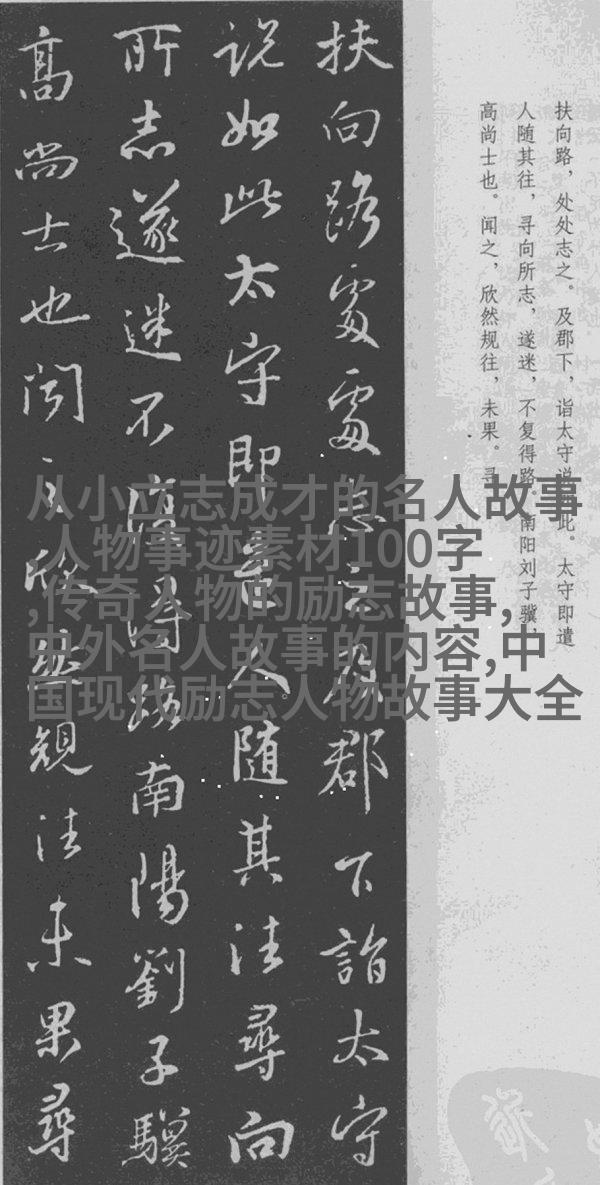 扶向路，处处志之。及郡下，诣太守说如此。太守即遣
人随其往，寻向所志，遂迷，不复得路。南阳刘子骥，
高尚士也。闻之，欣然规往，未果。寻
扶向路處處志之及郡下詣太守
説如此太守即遣人随其往尋向
所志遂迷不復得路南陽劉子驥
高尚士也聞之欣然規往未果尋
从小立志成才的名人故事
人物事迹素材100字
,传奇人物的励志故事,
中外名人故事的内容,中
国现代励志人物故事大全